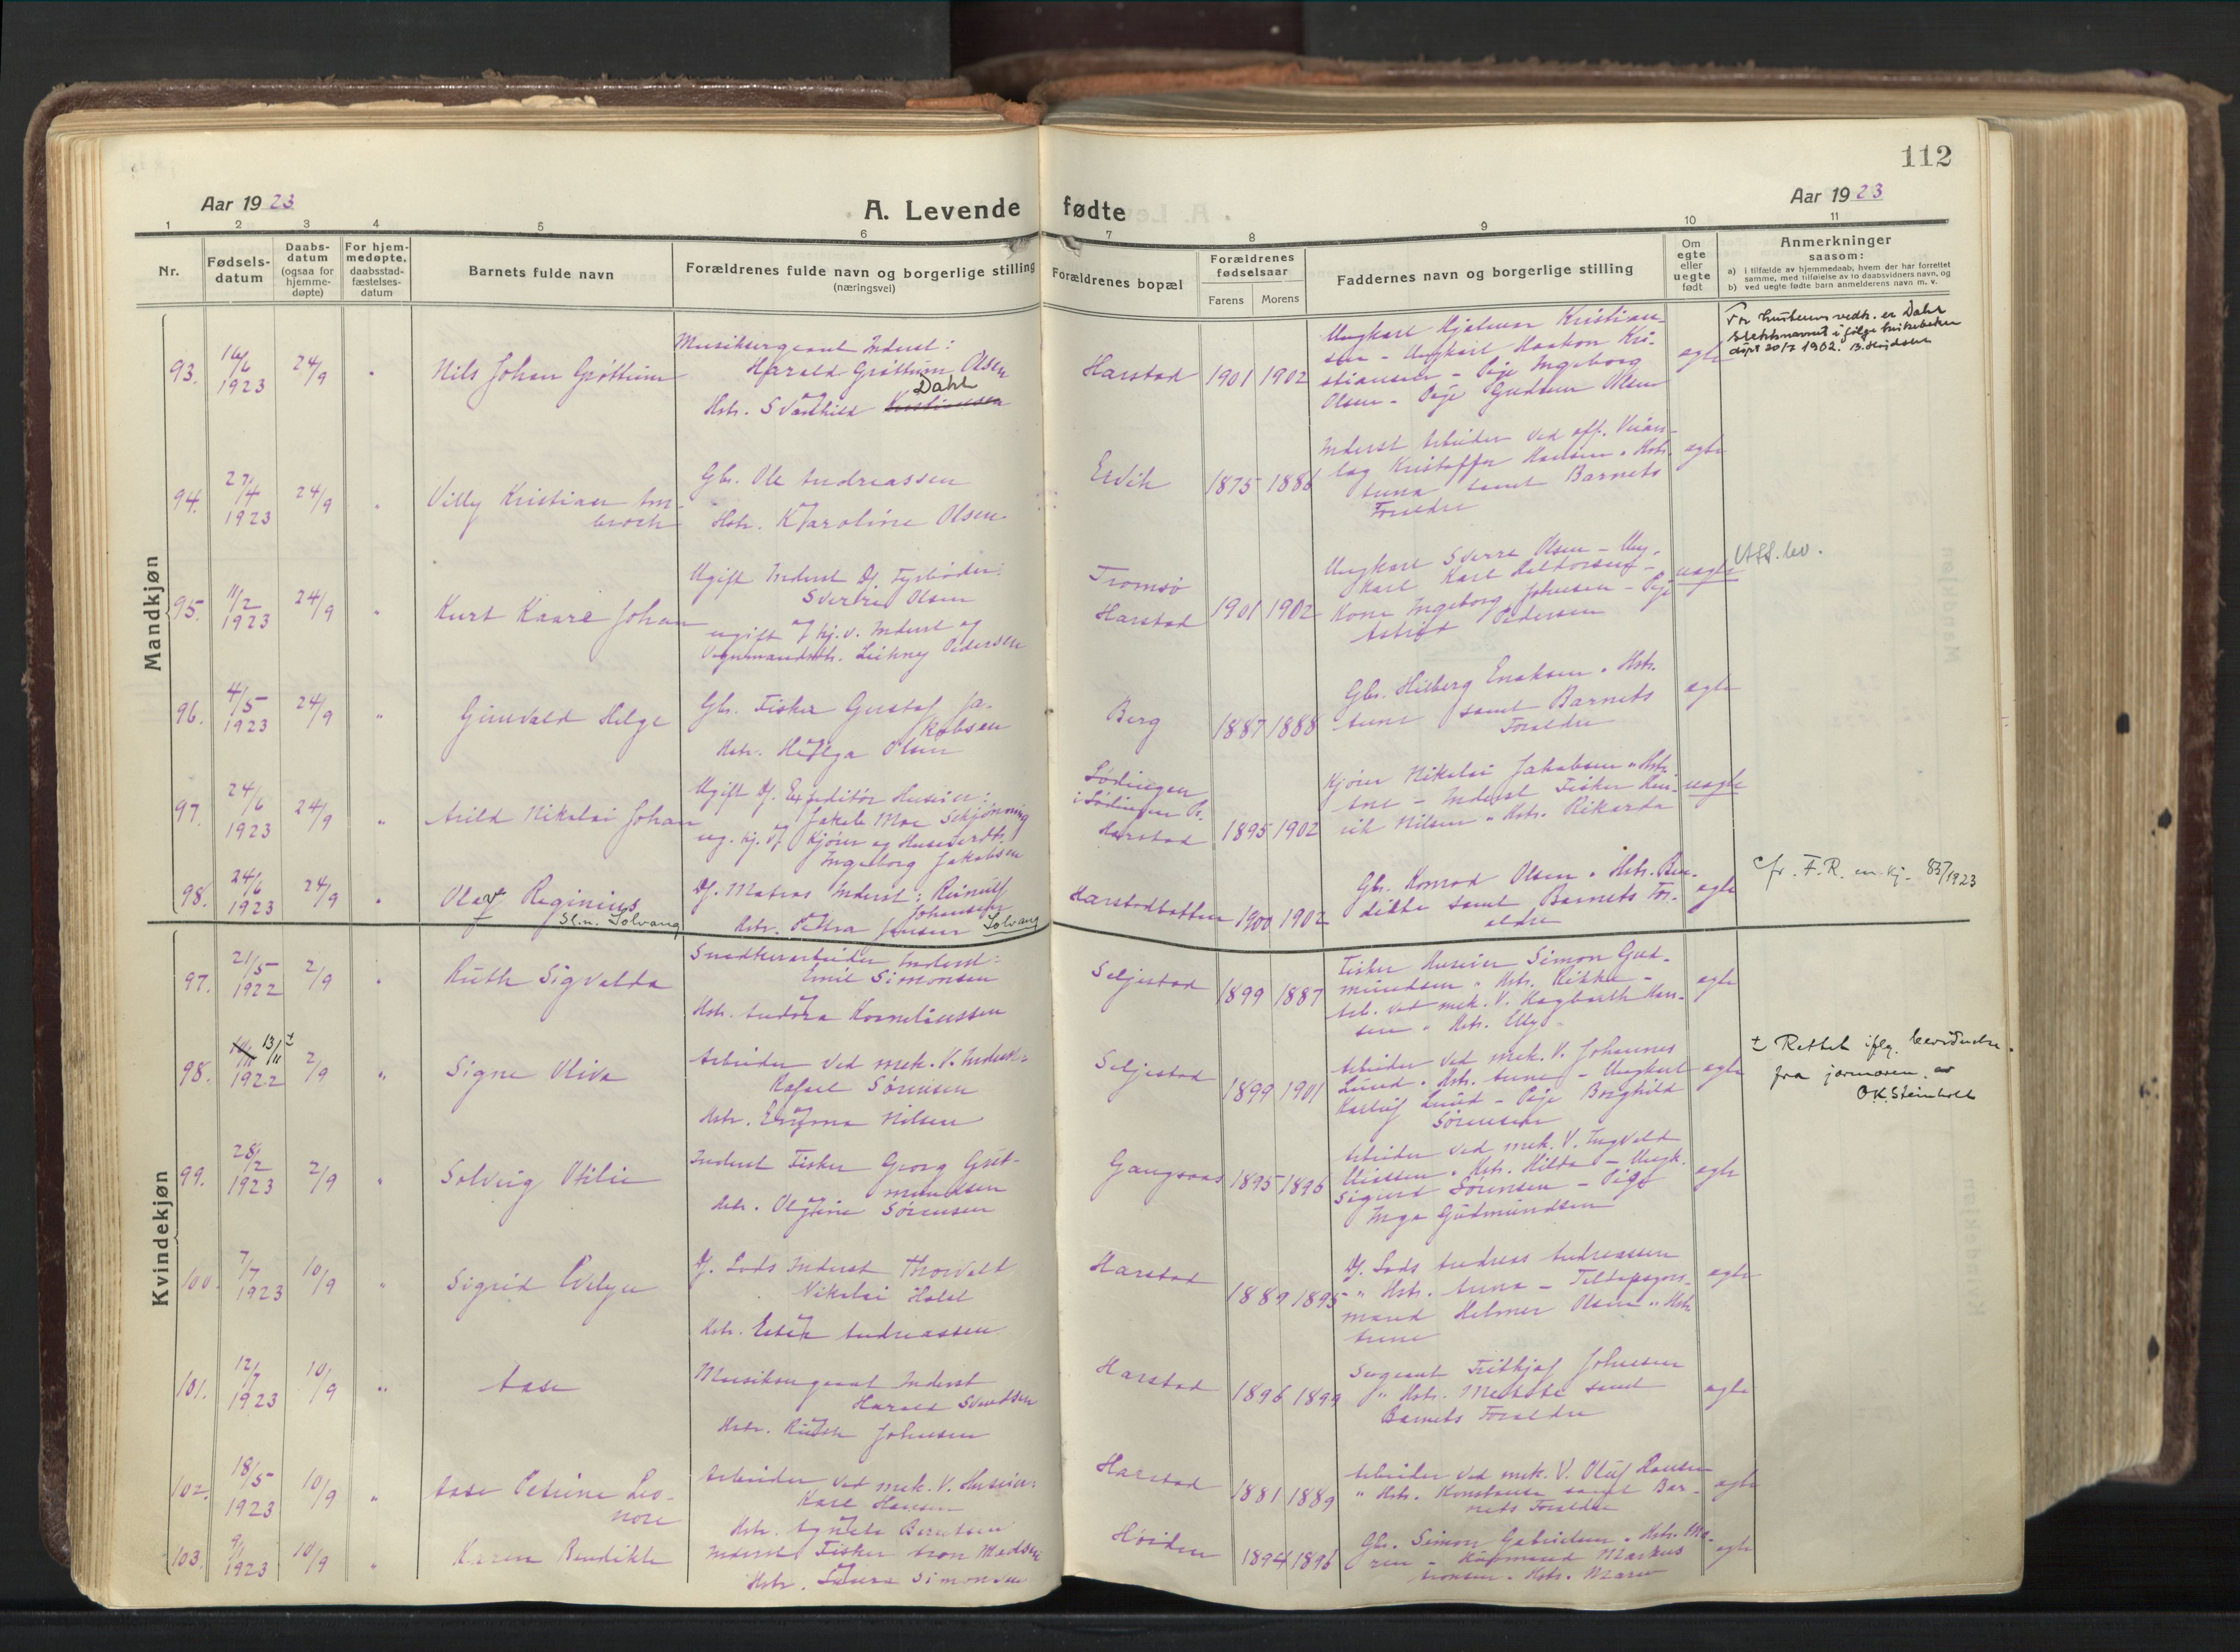 112
Aar 1923
A. Levende fødte
Aar 1923
1 2 3 4 5 6 7 8 9 10 11
Nr.
Fødsels-
datum
Daabs-
datum
(ogsaa for
hjemme-
døpte)
For hjem-
medøpte,
daabsstad-
fæstelses-
datum
Barnets fulde navn
Forældrenes fulde navn og borgerlige stilling
(næringsvei)
Forældrenes bopæl
Forældrenes
fødselsaar
Farens Morens
Faddernes navn og borgerlige stilling
Om
egte
eller
uegte
født
Anmerkninger
saasom:
a) i tilfælde av hjemmedaab, hvem der har forrettet
samme, med tilføielse av to daabsvidners navn, og
b) ved uegte fødte barn anmelderens navn m. v.
Mandkjøn
93. 16/6 1923 24/9 " Nils Johan Grøttum
Musiksergeant Inderst:
Harald Grøttum Olsen
Dahl
Hstr. Svanhild Kristiansen
Harstad 1901 1902
Ungkarl Hjalmar Kristian-
sen - Ungkarl Haakon Kri-
stiansen - Pige Ingeborg
Olsen - Pige Gudrun Olsen
egte
For hustruens vedk. er Dahl
slektsnavnet ifølge kirkeboken
døpt 20/7 1902.
94. 27/4 1923 24/9 " Villy Kristian Am-
broch
Gbr. Ole Andreassen
Hstr. Karoline Olsen
Ervik 1875 1886
Inderst Arbeider ved off. Veian-
læg Kristoffer Hansen " Hstr.
Anna samt Barnets
Forældre
egte
95. 11/2 1923 24/9 " Kurt Kaare Johan
Ugift Inderst Df. Fyrbøder:
Sverre Olsen
ugift hj. v. Inderst og
Leikny Pedersen
Tromsø
Harstad
1901 1902
Ungkarl Sverre Olsen - Ung-
karl Karl Haldorsen -
Kone Ingeborg Johnsen - Pige
Astrid Pedersen
uegte
96. 4/5 1923 24/9 " Gunvald Helge
Gbr. Fisker Gustaf Ja-
kobsen
Hstr. Helga Olsen
Berg 1887 1888
Gbr. Hilberg Enoksen " Hstr.
Anne samt Barnets
Forældre
egte
97. 24/6 1923 24/9 " Arild Nikolai Johan
Ugift Df. Expeditør Huseier:
Jakob Moe Schjønning
ug. hj. v. Kjører og Huseierdtr.
Ingeborg Jakobsen
Lødingen
i Lødingen Pr.
Harstad
1895 1902
Kjører Nikolai Jakobsen " Hstr.
Ane - Inderst Fisker Hen-
rik Nilsen " Hstr. Rikarda
uegte
98. 24/6 1923 24/9 " Olav Reginius
Sl.n. Solvang
Df. Matros Inderst: Reinulf
Johansen
Hstr. Petra Jensen Solvang
Harstadbotten 1900 1902
Gbr. Konrad Olsen " Hstr. Ben-
dikte samt Barnets For-
ældre
egte
cfr. F.R. en. kj. 83/1923
Kvindekjøn
97. 21/5 1922 2/9 " Ruth Sigvalda
Snedkerarbeider Inderst:
Emil Simonsen
Hstr. Andora Korneliussen
Seljestad 1899 1887
Fisker Huseier Simon Gud-
mundsen " Hstr. Rikka -
Arb. ved mek. V. Hagbarth Han-
sen " Hstr. Elly
egte
98. 13/11 1922 2/9 " Signe Oliva
Arbeider ved mek. V. Inderst:
Rafael Sørensen
Hstr. Emma Nilsen
Seljestad 1899 1901
Arbeider ved mek. V. Johannes
Lund " Hstr. Anne - Ungkarl
Lund - Pige Borghild
Sørensen
egte
± Rettet iflg. bevidnelse
fra jormoren.
O.K. Steinholt
99. 28/2 1923 2/9 " Solveig Otilie
Inderst Fisker Georg Gud-
mundsen
Hstr. Olufine Sørensen
Gangsaas 1895 1896
Arbeider ved mek. V. Ingvald
Nilssen " Hstr. Hilda - Ungk.
Sigurd Sørensen - Pige
Inga Gudmundsen
egte
100. 7/7 1923 10/9 " Sigrid Evelyn
Df. Lods Inderst Thorvald
Nikolai Holst
Hstr. Ester Andreassen
Harstad 1889 1895
Df. Lods Andreas Andreassen
" Hstr. Anna -
mand Helmer Olsen " Hstr.
Anne
egte
101. 12/7 1923 10/9 " Aase
Musiksergeant Inderst
Harald Svendsen
Hstr. Ruth Johnsen
Harstad 1896 1899
Sergeant Fritkjof Johnsen
" Hstr. samt
Barnets Forældre
egte
102. 18/5 1923 10/9 " Aase Petrine Leo-
nore
Arbeider ved mek. V. Huseier:
Karl Hansen
Hstr. Agnete Berntsen
Harstad 1881 1889
Arbeider ved mek. V. Oluf Hansen
" Hstr. Konstanse samt Bar-
nets Forældre
egte
103. 1923 10/9 " Karen Bendikte
Inderst Fisker Aron Madsen
Hstr. Laura Simonsen
1894 1896
Gbr. Simon Gabrielsen " Hstr. Ma-
ren - Kapmand Markus
Aronsen " Hstr. Maren
egte